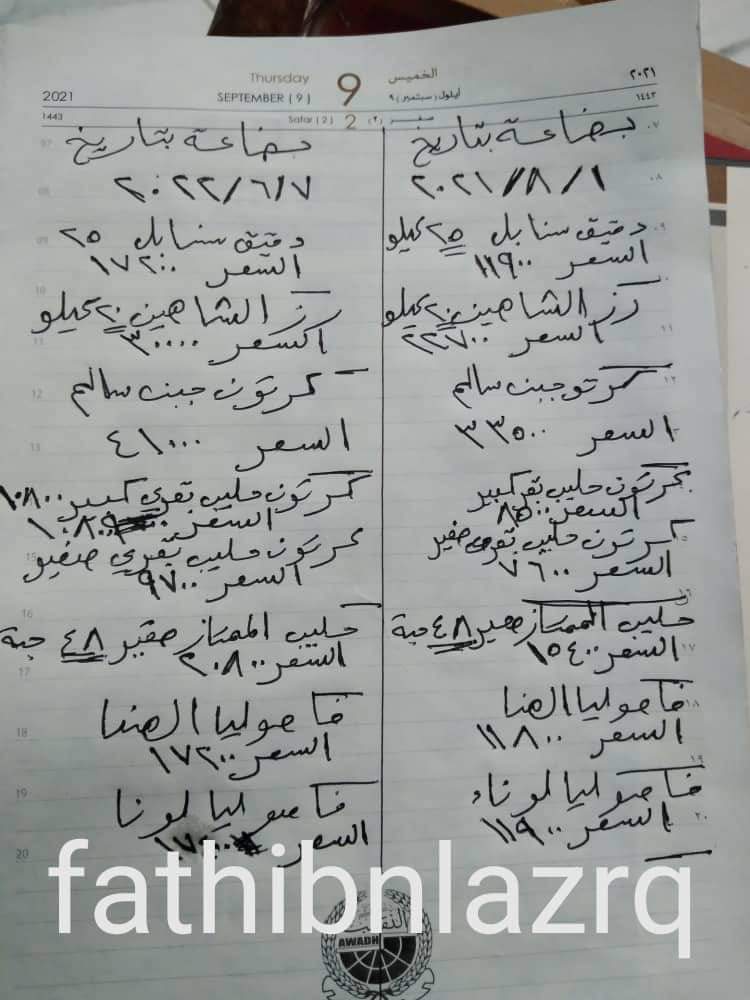 2021
Thursday
SEPTEMBER ( 9 )
9
الخميس
أيلول (سبتمبر) ٩
٢٠٢١
1443
Safar ( 2 )
2
صفر (٢)
١٤٤٣
بضاعة بتاريخ
٢٠٢١/٨/١
دقيق سنابل ٢٥ كيلو
السعر ١١٩٠٠
رز الشاهين ٢٠ كيلو
السعر ٢٢٧٠٠
كرتو جبن سالم
السعر ٣٣٥٠٠
كرتون حليب بقر كبير
السعر ٨٥٠٠
كرتون حليب بقري صغير
السعر ٧٦٠٠
حليب الممتاز صغير ٤٨ حبة
السعر ١٥٤٠٠
فاصوليا الهنا
السعر ١١٨٠٠
فاصوليا لونا
السعر ١١٩٠٠
بضاعة بتاريخ
٢٠٢٢/٦/٧
دقيق سنابل ٢٥
السعر ١٧٢٠٠
رز الشاهين ٢٠ كيلو
السعر ٣٠٠٠٠
كرتون جبن سالم
السعر ٤١٠٠٠
كرتون حليب بقري كبير ١٠٨٠٠
السعر
كرتون حليب بقري صغير
السعر ٩٧٠٠
حليب الممتاز صغير ٤٨ حبة
السعر ٢٠٨٠٠
فاصوليا الهنا
السعر ١٧٢٠٠
فاصوليا لونا
السعر
fathibnlazrq
AWADH